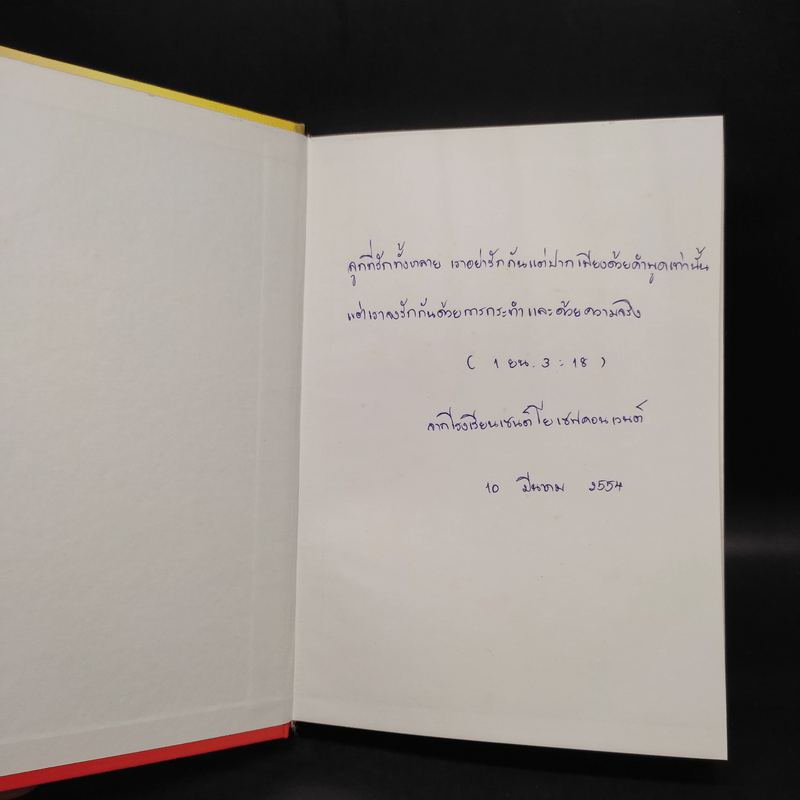 ลูกที่รักทั้งหลาย เราอย่ารักกันแต่ปาก เพียงด้วยคำพูดเท่านั้น
แต่เราจงรักกันด้วยการกระทำและด้วยความจริง
( 1 ยน. 3 : 18 )
จากโรงเรียนเซนต์โยเซฟคอนเวนต์
10 มีนาคม 2554